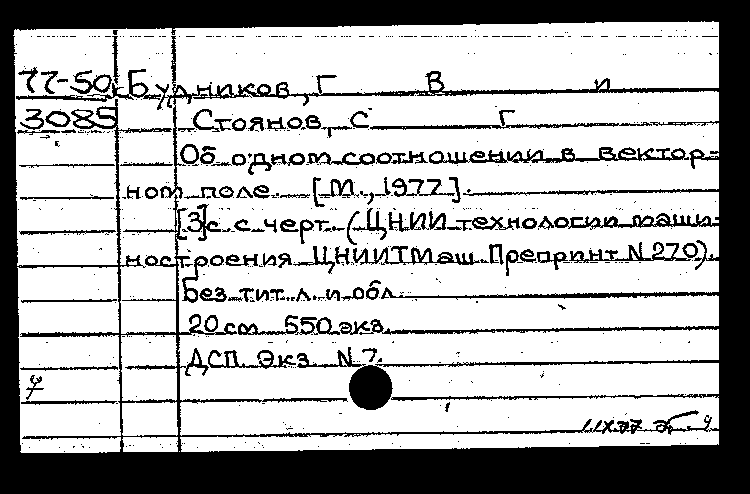 77-50 Будников, Г В и
3085 Стоянов, С Г
Об одном соотношении в вектор-
ном поле. [М., 1977].
[3]с с черт. (ЦНИИ технологии маши-
ностроения ЦНИИТМаш. Препринт N 270).
Без тит. л. и обл.
20 см 550 экз.
ДСП. Экз. N 7.